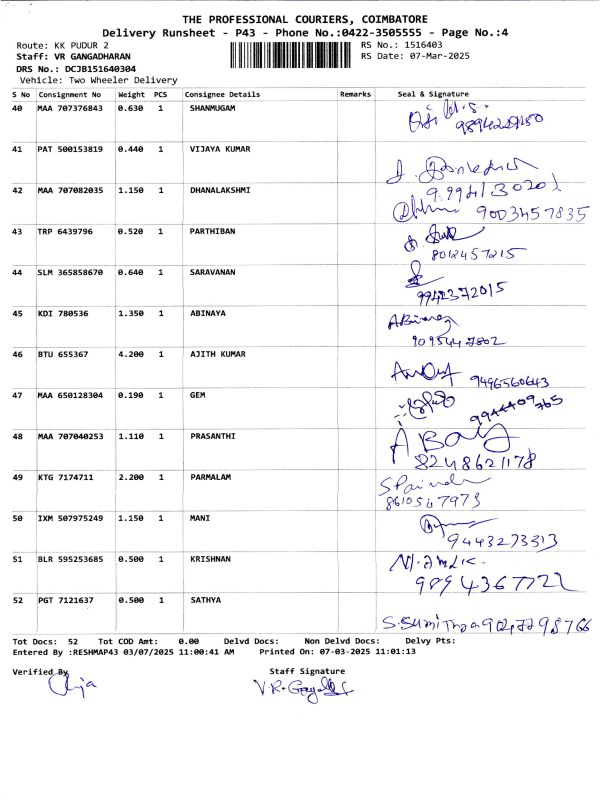 THE PROFESSIONAL COURIERS, COIMBATORE
Delivery Runsheet - P43 - Phone No.:0422-3505555 - Page No.:4
Route: KK PUDUR 2 RS No.: 1516403
Staff: VR GANGADHARAN RS Date: 07-Mar-2025
DRS No.: DCJB151640304
Vehicle: Two Wheeler Delivery
S No Consignment No Weight PCS Consignee Details Remarks Seal & Signature
40 MAA 707376843 0.630 1 SHANMUGAM
41 PAT 500153819 0.440 1 VIJAYA KUMAR
42 MAA 707082035 1.150 1 DHANALAKSHMI
9003457835
43 TRP 6439796 0.520 1 PARTHIBAN
8012457215
44 SLM 365858670 0.640 1 SARAVANAN
9942372015
45 KDI 780536 1.350 1 ABINAYA
9095447802
46 BTU 655367 4.200 1 AJITH KUMAR
9496560643
47 MAA 650128304 0.190 1 GEM
9944409365
48 MAA 707040253 1.110 1 PRASANTHI
8248621178
49 KTG 7174711 2.200 1 PARMALAM
8610547973
50 IXM 507975249 1.150 1 MANI
9443273313
51 BLR 595253685 0.500 1 KRISHNAN
9894367722
52 PGT 7121637 0.500 1 SATHYA
Tot Docs: 52 Tot COD Amt: 0.00 Delvd Docs: Non Delvd Docs: Delvy Pts:
Entered By :RESHMAP43 03/07/2025 11:00:41 AM Printed On: 07-03-2025 11:01:13
Verified By Staff Signature